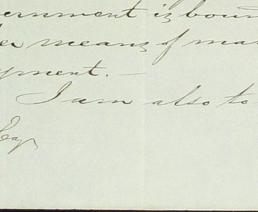 ernment is boun
er means of ma
yment. —
I am also to
Esq